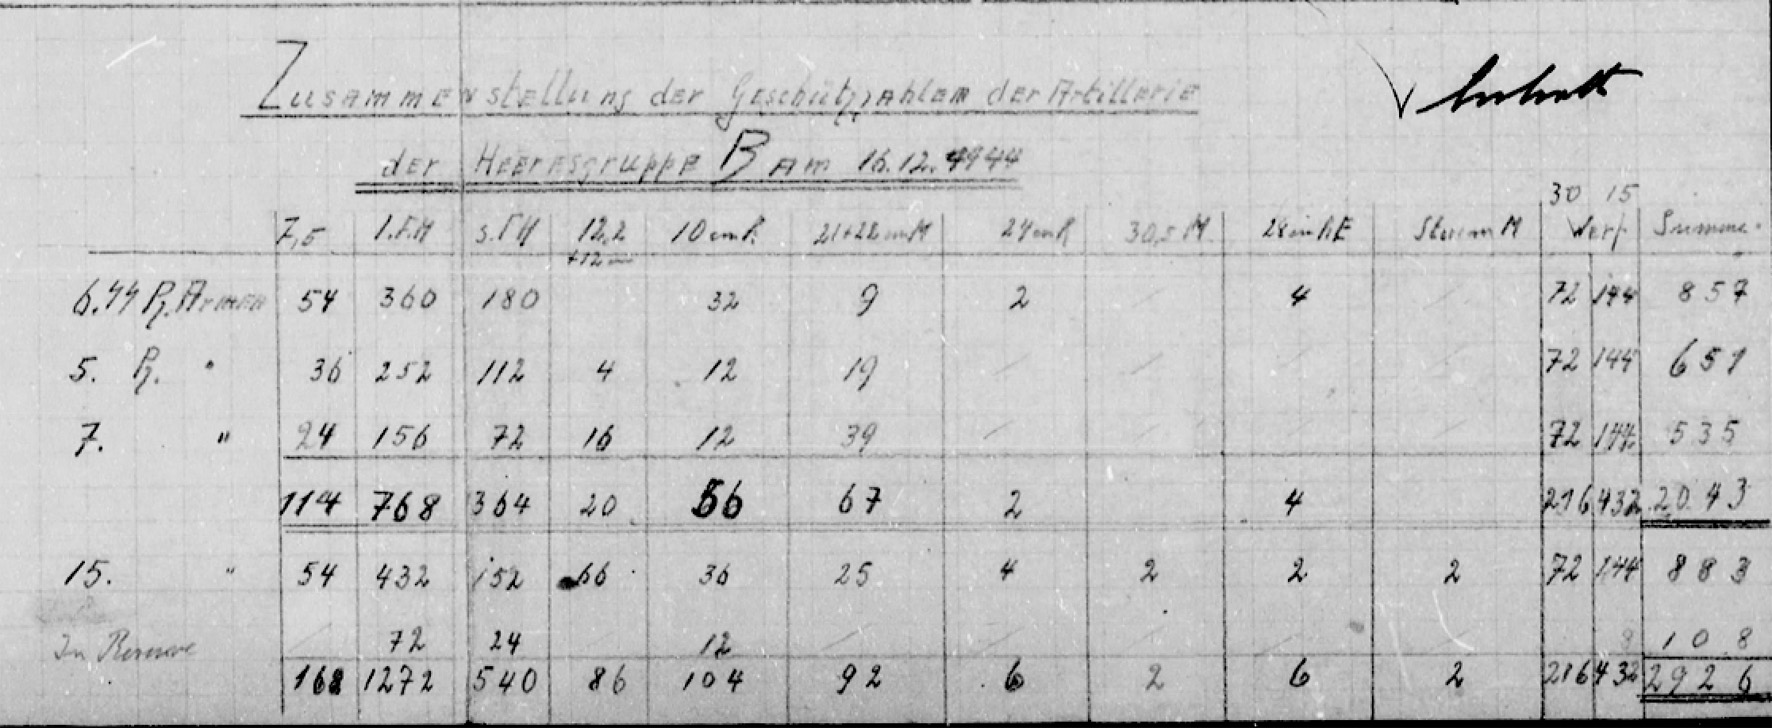 Zusammenstellung der Geschützzahlen der Artillerie
der Heeresgruppe B am 16.12.1944
30 15
7,5 l.F.H s.F.H 12,2 10 cm K. 21+22 cm M 24 cm K 30,5 M 28 cm K E Sturm M Werf. Summe.
+12 cm
6. SS Pz. Armee 54 360 180 32 9 2 4 72 144 857
5. Pz. " 36 252 112 4 12 19 72 144 651
7. " 24 156 72 16 12 39 72 144 535
114 768 364 20 56 67 2 4 216 432 2043
15. " 54 432 152 66 36 25 4 2 2 2 72 144 883
In Reserve 72 24 12 108
168 1272 540 86 104 92 6 2 6 2 216 432 2926